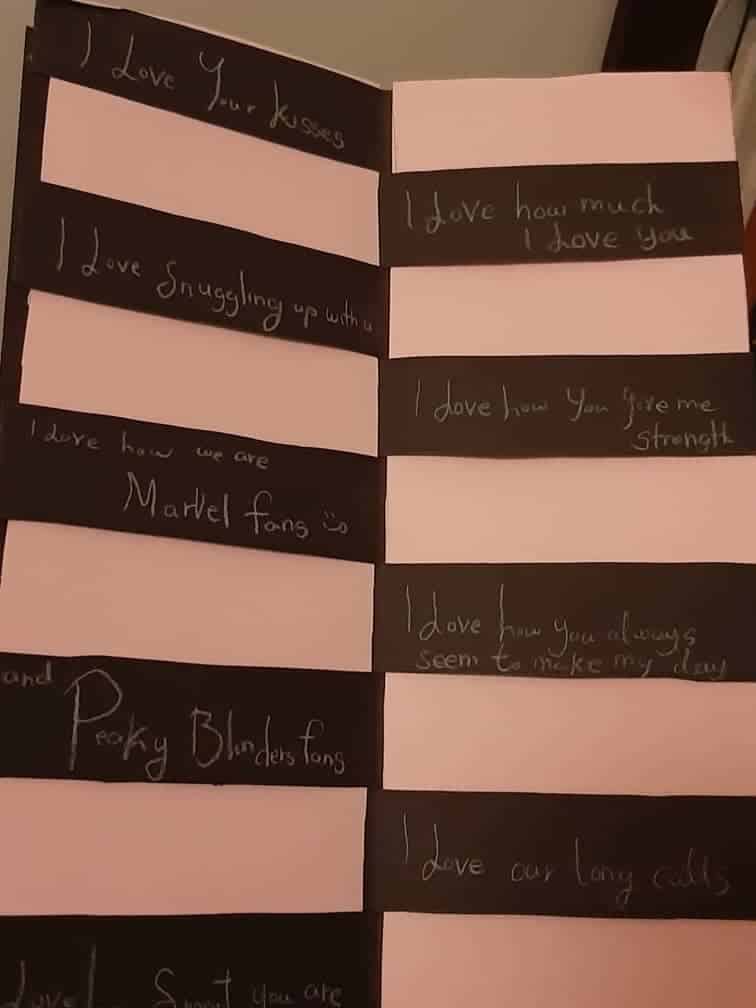 I Love Your kisses
I Love Snuggling up with u
I Love how we are
Marvel fans :)
and
Peaky Blinders fans
you are
I Love how much
I Love You
I Love how You give me
strength
I Love how you always
seem to make my day
I Love our long calls